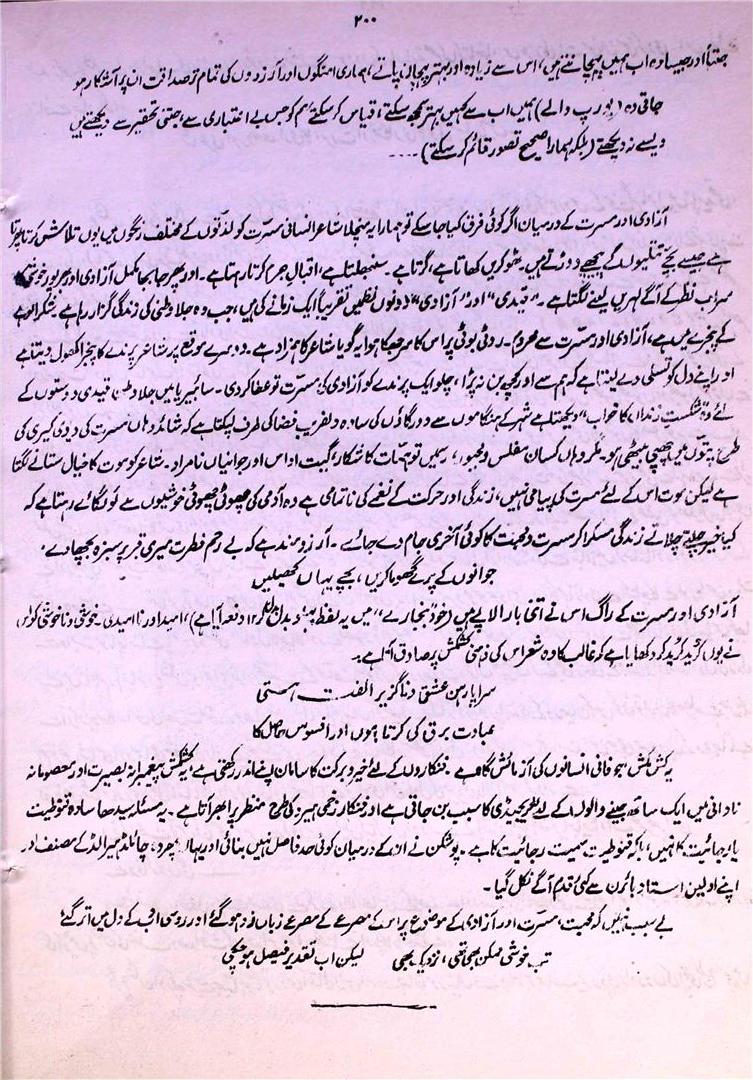 ۲۰۰
جتنا اور جیسا وہ اب ہمیں پہچانتے ہیں، اس سے زیادہ اور بہتر پہچان پاتے، ہماری امنگوں اور آرزوؤں کی تمام تر صداقت ان پر آشکار ہو
جاتی وہ (یورپ والے) ہمیں اب سے کہیں بہتر سمجھ سکتے، قیاس کر سکتے ہم کو جس بے اعتباری سے، جتنی تحقیر سے دیکھتے ہیں
ویسے نہ دیکھتے (بلکہ ہمارا صحیح تصور قائم کر سکتے) ....
آزادی اور مسرت کے درمیان اگر کوئی فرق کیا جا سکے تو ہمارا یہ منچلا شاعر انسانی مسرت کو لذتوں کے مختلف رنگوں میں یوں تلاش کرتا پھرتا
ہے جیسے بچے تتلیوں کے پیچھے دوڑتے ہیں۔ ٹھوکریں کھاتا ہے، گرتا ہے۔ سنبھلتا ہے، اقبال جرم کرتا رہتا ہے۔ اور پھر جا بجا مکمل آزادی اور بھرپور خوشی کا
سراب نظر کے آگے لہریں لینے لگتا ہے۔ "قیدی" اور "آزادی" (دونوں نظمیں تقریباً ایک زمانے کی ہیں، جب وہ جلا وطنی کی زندگی گزار رہا ہے۔ شکرا لوہے
کے پنجرے میں ہے، آزادی اور مسرت سے محروم۔ روٹی بوٹی پر اس کا سر جھکا ہوا یہ گویا شاعر کا ہمزاد ہے۔ دوسرے موقع پر شاعر پرندے کا پنجرا کھول دیتا ہے
اور اپنے دل کو تسلی دے لیتا ہے کہ ہم سے اور کچھ بن نہ پڑا، چلو ایک پرندے کو آزادی کی مسرت تو عطا کر دی۔ سائبیریا میں جلا وطن قیدی دوستوں کے
لئے وہ شکست زنداں کا خواب دیکھتا ہے شہر کے ہنگاموں سے دور گاؤں کی سادہ دلفریب فضا کی طرف لپکتا ہے کہ شائد وہاں مسرت کی دیوی کیری کی
طرح پتوں میں چھپی بیٹھی ہو۔ مگر وہاں کسان مفلس و مجبور، رسمیں توہمات کا شکار، گیت اداس اور جوانیاں نامراد۔ شاعر کو موت کا خیال ستانے لگتا
ہے لیکن موت اس کے لئے مسرت کی پیامی نہیں، زندگی اور حرکت کے نغمے کی ناتمامی ہے وہ آدمی کی چھوٹی چھوٹی خوشیوں سے لو لگائے رہتا ہے کہ
کیا خبر چلتے چلاتے زندگی مسکرا کر مسرت و محبت کا کوئی آخری جام دے جائے۔ آرزو مند ہے کہ بے رحم فطرت میری قبر پر سبزہ بچھا دے۔
جوانوں کے پرے گھوما کریں، بچے یہاں کھیلیں
آزادی اور مسرت کے راگ اس نے اتنی بار الاپے ہیں (خود "بنجارے" میں یہ لفظ دفعہ آیا ہے)، امید اور ناامیدی۔ خوشی و ناخوشی کو اس
نے یوں کرید کرید کر دکھایا ہے کہ غالب کا وہ شعر اس کی ذہنی کشمکش پر صادق آتا ہے۔
سراپا رہن عشق و ناگزیر الفت ہستی
عبادت برق کی کرتا ہوں اور افسوس حاصل کا
یہ کش مکش، جو فانی انسانوں کی آزمائش گاہ ہے۔ فنکاروں کے لئے خیر و برکت کا سامان اپنے اندر رکھتی ہے، یہ کشمکش پیغمبرانہ بصیرت اور معصومانہ
نادانی میں ایک ساتھ جینے والوں کے لئے ٹریجیڈی کا سبب بن جاتی ہے اور فنکار زخمی ہیرو کی طرح منظر پر ابھر آتا ہے۔ یہ مسئلہ سیدھا سادہ قنوطیت
یا رجائیت کا نہیں، بلکہ قنوطیت سمیت رجائیت کا ہے۔ پوشکن نے ان کے درمیان کوئی حد فاصل نہیں بنائی اور یہاں وہ، چائلڈ ہیرالڈ کے مصنف اور
اپنے اولین استاد بائرن سے کئی قدم آگے نکل گیا۔
بے سبب نہیں کہ محبت، مسرت اور آزادی کے موضوع پر اس کے مصرعے کے مصرعے زباں زد ہو گئے اور روسی ادب کے دل میں اتر گئے
تب خوشی ممکن بھی تھی، نزدیک بھی لیکن اب تقدیر فیصل ہو چکی